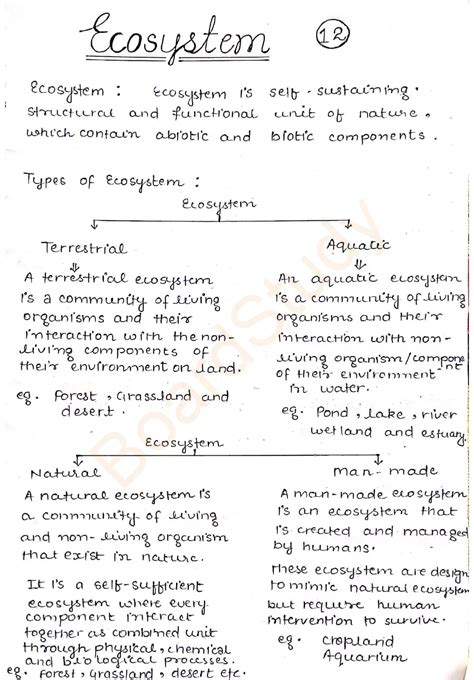 Ecosystem
12
Ecosystem : Ecosystem is self-sustaining.
structural and functional unit of nature,
which contain abiotic and biotic components.
Types of Ecosystem :
Ecosystem
Terrestrial
A terrestrial ecosystem
is a community of living
organisms and their
interaction with the non-
living components of
their environment on land.
eg. Forest, Grassland and
desert.
Aquatic
An aquatic ecosystem
is a community of living
organisms and their
interaction with non-
living organism/component
of their environment
in water.
eg. Pond, lake, river
wetland and estuary.
Ecosystem
Natural
A natural ecosystem is
a community of living
and non-living organism
that exist in nature.
It is a self-sufficient
ecosystem where every
component interact
together as combined unit
through physical, chemical
and biological processes.
eg. Forest, Grassland, desert etc.
Man-made
A man-made ecosystem
is an ecosystem that
is created and managed
by humans.
These ecosystem are design
to mimic natural ecosystem
but require human
intervention to survive.
eg. Cropland
Aquarium
BoardStudy